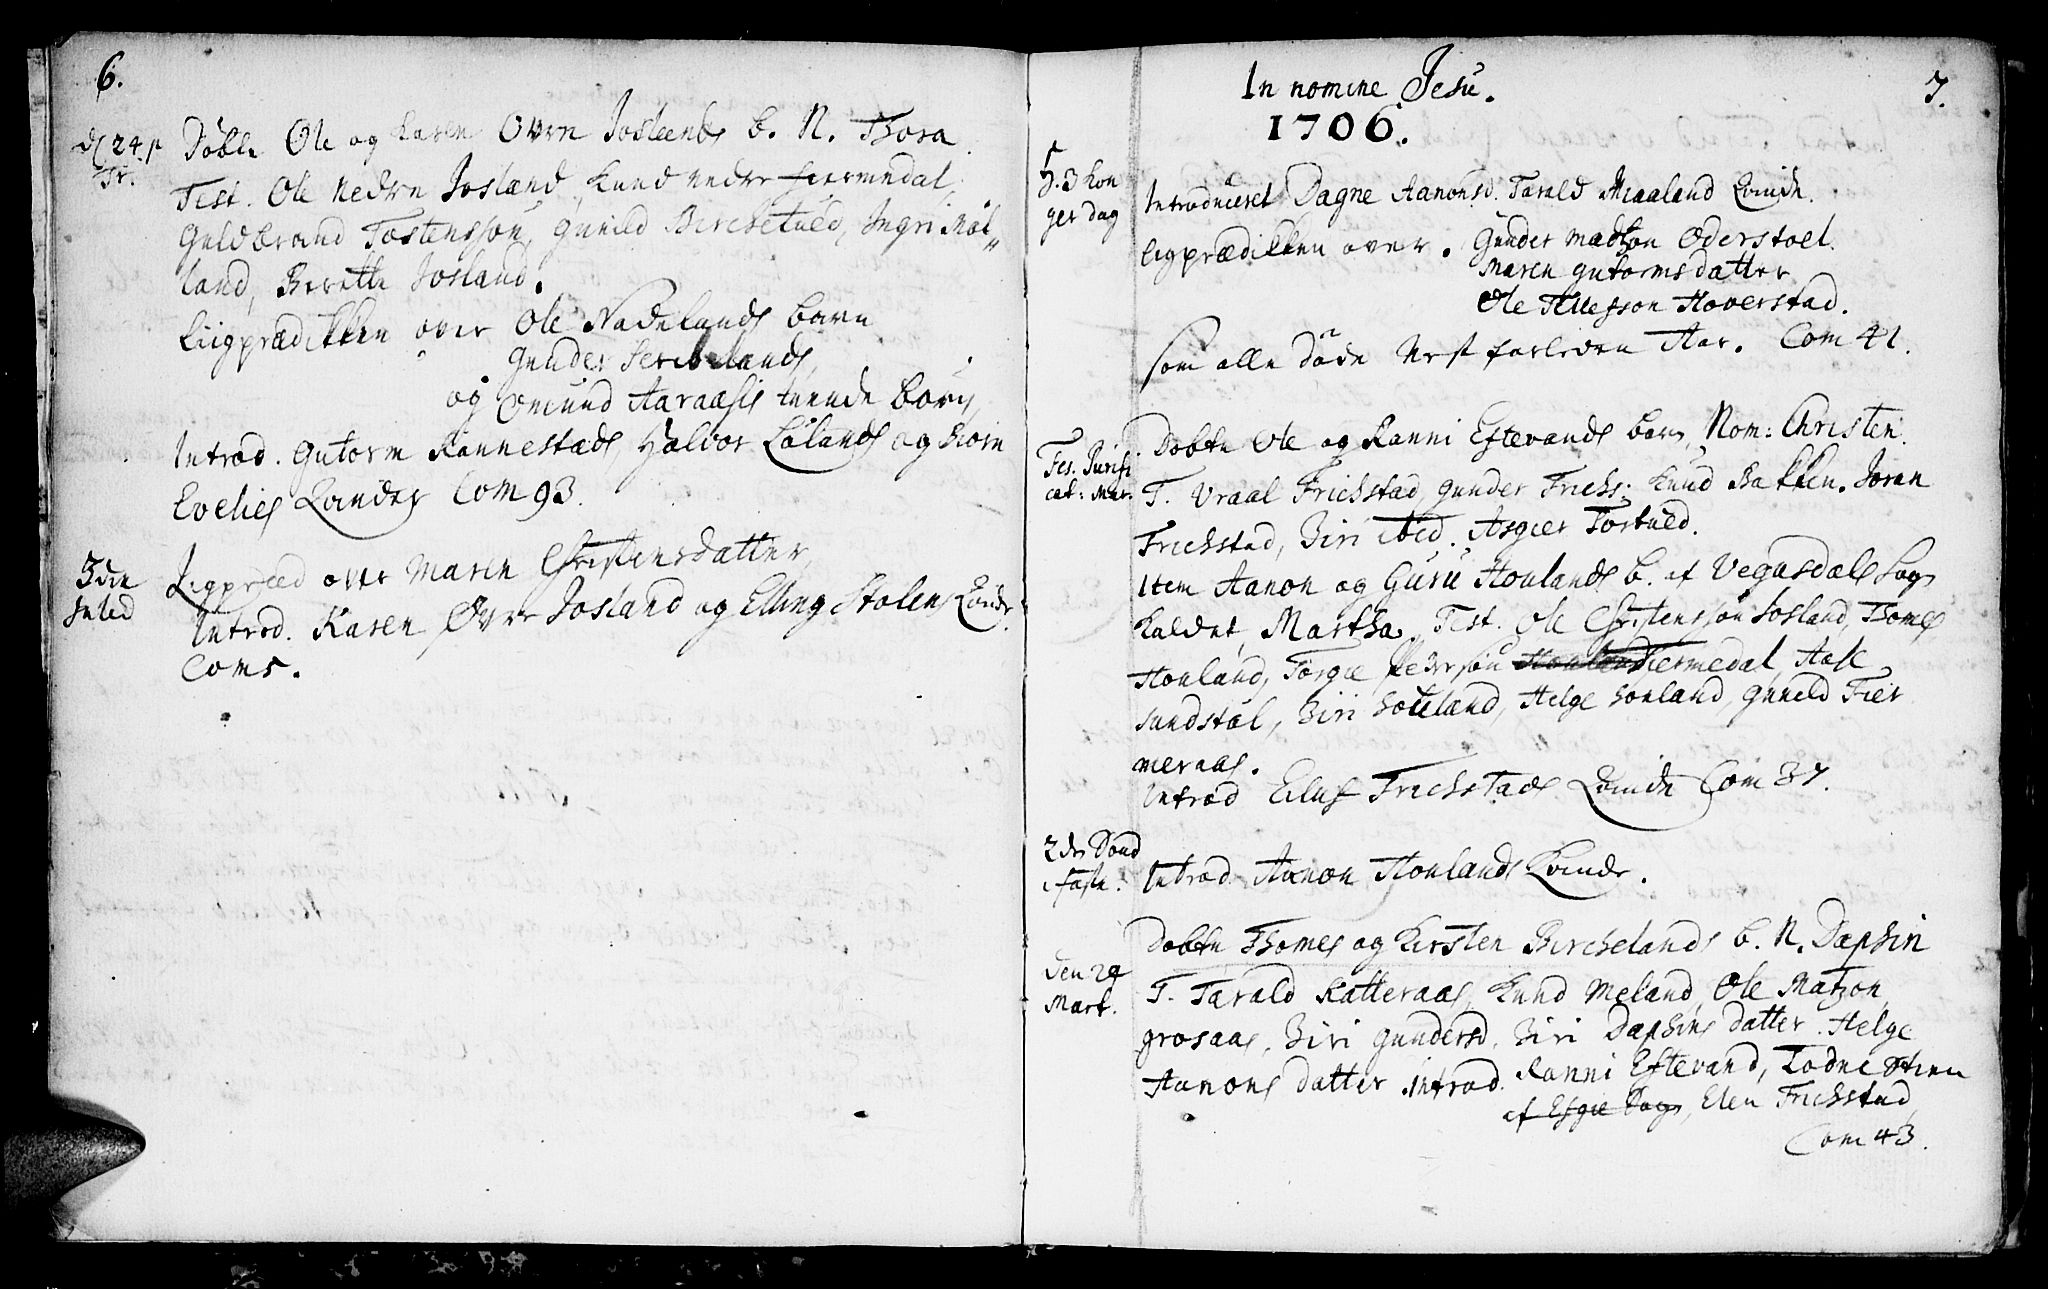 6.
24 p
Tr.
Døbte Ole og Karen Øvre Joslands b. N. Thora.
Test. Ole Nedre Josland, Knud nedre Fiermedal,
Guldbrand Tostenssøn, Gunild Birchetued, Ingri Møl„
land, Berette Josland.
Liigprædikken over Ole Nadelands barn
Gunder
og Omund Aaraasis tuende børn,
Introd. Gutorm Rannestads, Halvor Lølands og Biørn
Evelies Qvinder Com 93.
3die
Juled
Ligpræd over Maren Christensdatter
Introd. Karen Øvre Josland og Elling Stolens Qvinde.
Com 5.
In nomine Jesu.
1706.
7.
H. 3 Kon
ger dag
Introduceret Dagne Aanonsd. Tarald Miaaland Qvinde.
Ligprædikken over. Gunder Madtzon Oderstoel.
Maren Gutormsdatter
Ole Tellefsson Hoverstad.
som alle døde Nest forleden Aar. Com 41.
Fes. Purifi
cat: Mar.
Døbte Ole og Ranni Eftevands barn, Nom: Christen.
T. Vraal Frichstad, Gunder Frichs: Knud Bakken. Joren
Frichstad, Biri ibid. Asgier Tortued.
Item Aanon og Guru Honlands b. af Vegusdals Sogn
kaldet Martha. Test. Ole Christenssøn Josland, Thomes
Honland, Torgie Pedersøn Honland Fiermedal, Aase
Sundstøl, Biri Honland, Helge Honland, Gunild Fier
meraas.
Introd Eiluf Frichstads Qvinde Com 37.
2den Sønd
i Faste.
Introd Aanon Honlands Qvinde.
den 29
Mart.
Døbte Thomes og Kirsten Birchelands b. N. Daphin
T. Tarald Katteraas, Knud Meland, Ole Matzon
Grosaas, Biri Gundersd, Biri Daphins datter. Helge
Aanons datter Introd. Ranni Eftevand, Todne Stien
af Efgie Sogn, Elen Frichstad
Com 43.